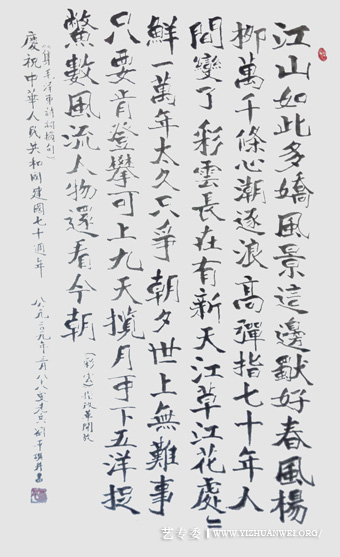 江山如此多嬌風景這邊獨好春風楊
柳萬千條心潮逐浪高彈指七十年人
間變了彩雲長在有新天江草江花處〻
鮮一萬年太久只爭朝夕世上無難事
只要肯登攀可上九天攬月可下五洋捉
鱉數風流人物還看今朝
(彩雲)指改革開放
慶祝中華人民共和國建國七十週年
艺专委 WWW.YIZHUANWEI.ORG/